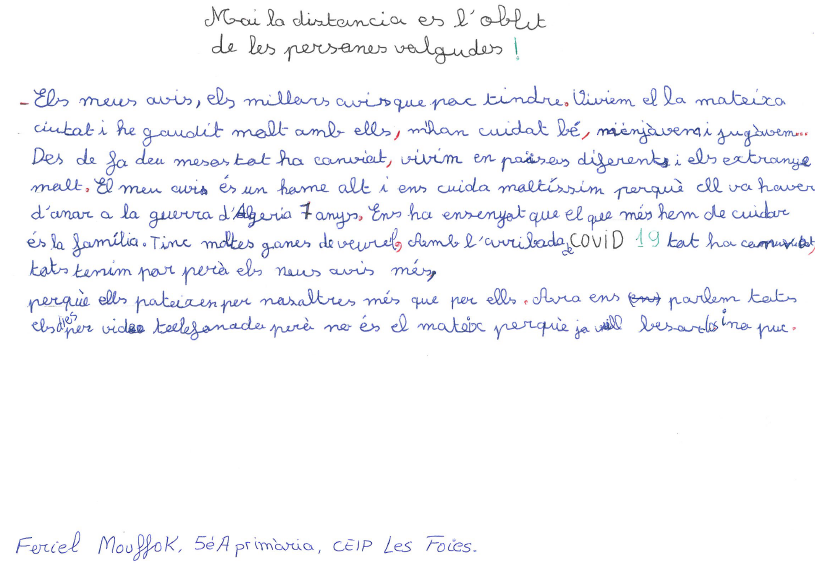 Mai la distancia es l'oblit
de les persones valgudes!
- Els meus avis, els millors avis que poc tindre. Viviem el la mateixa
ciutat i he gaudit molt amb ells, m'han cuidat bé, menjàvem i jugàvem...
Des de fa deu mesos tot ha canviat, vivim en països diferents i els extranye
molt. El meu avi és un home alt i ens cuida moltíssim perquè ell va haver
d'anar a la guerra d'Algeria 7 anys. Ens ha ensenyat que el que més hem de cuidar
és la família. Tinc moltes ganes de veurel, Amb l'arribada de COVID 19 tot ha canviat,
tots tenim por però els meus avis més,
perquè ells pateixen per nosaltres més que per ells. Avra ens (en) parlem tots
els dies per video telefonada però no és el mateix perquè jo vull besarlos i no puc.
Feriel Mouffok, 5é A primària, CEIP Les Foies.